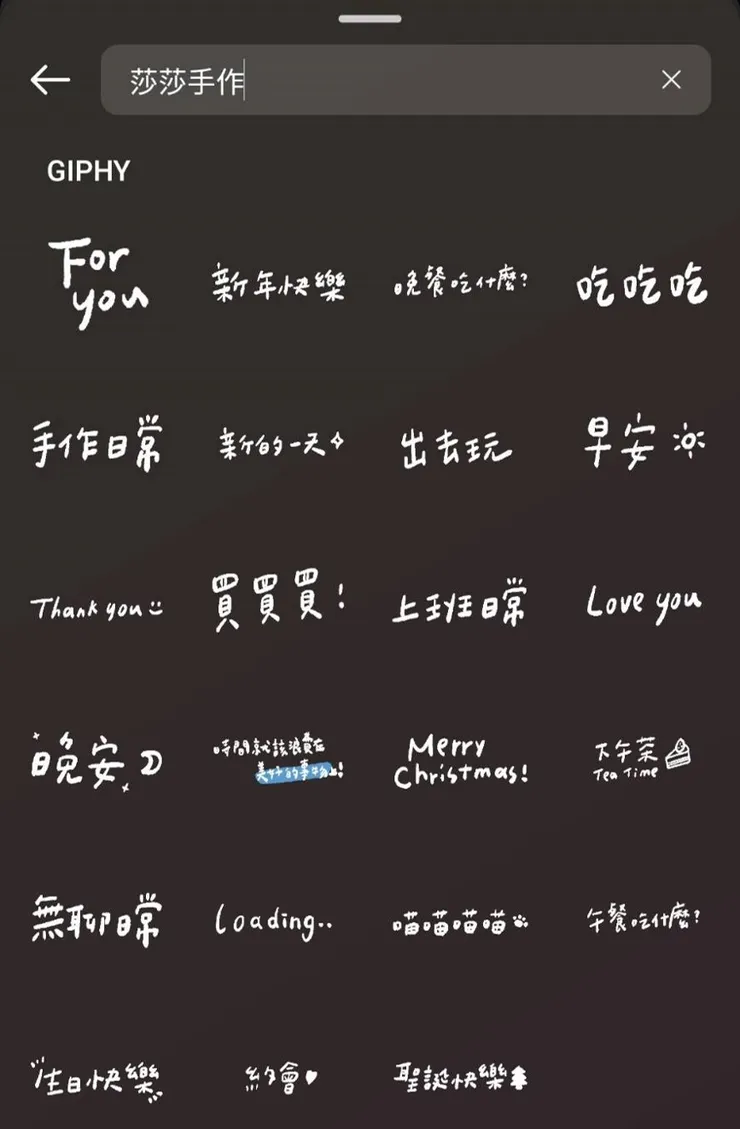 莎莎手作
GIPHY
For
you
新年快樂
晚餐吃什麼?
吃吃吃
手作日常
新的一天
出去玩
早安
Thank you
買買買!
上班日常
Love you
晚安
時間就該浪費在
美好的事物上!
Merry
Christmas!
下午茶
Tea Time
無聊日常
Loading..
喵喵喵喵
午餐吃什麼?
生日快樂
約會
聖誕快樂